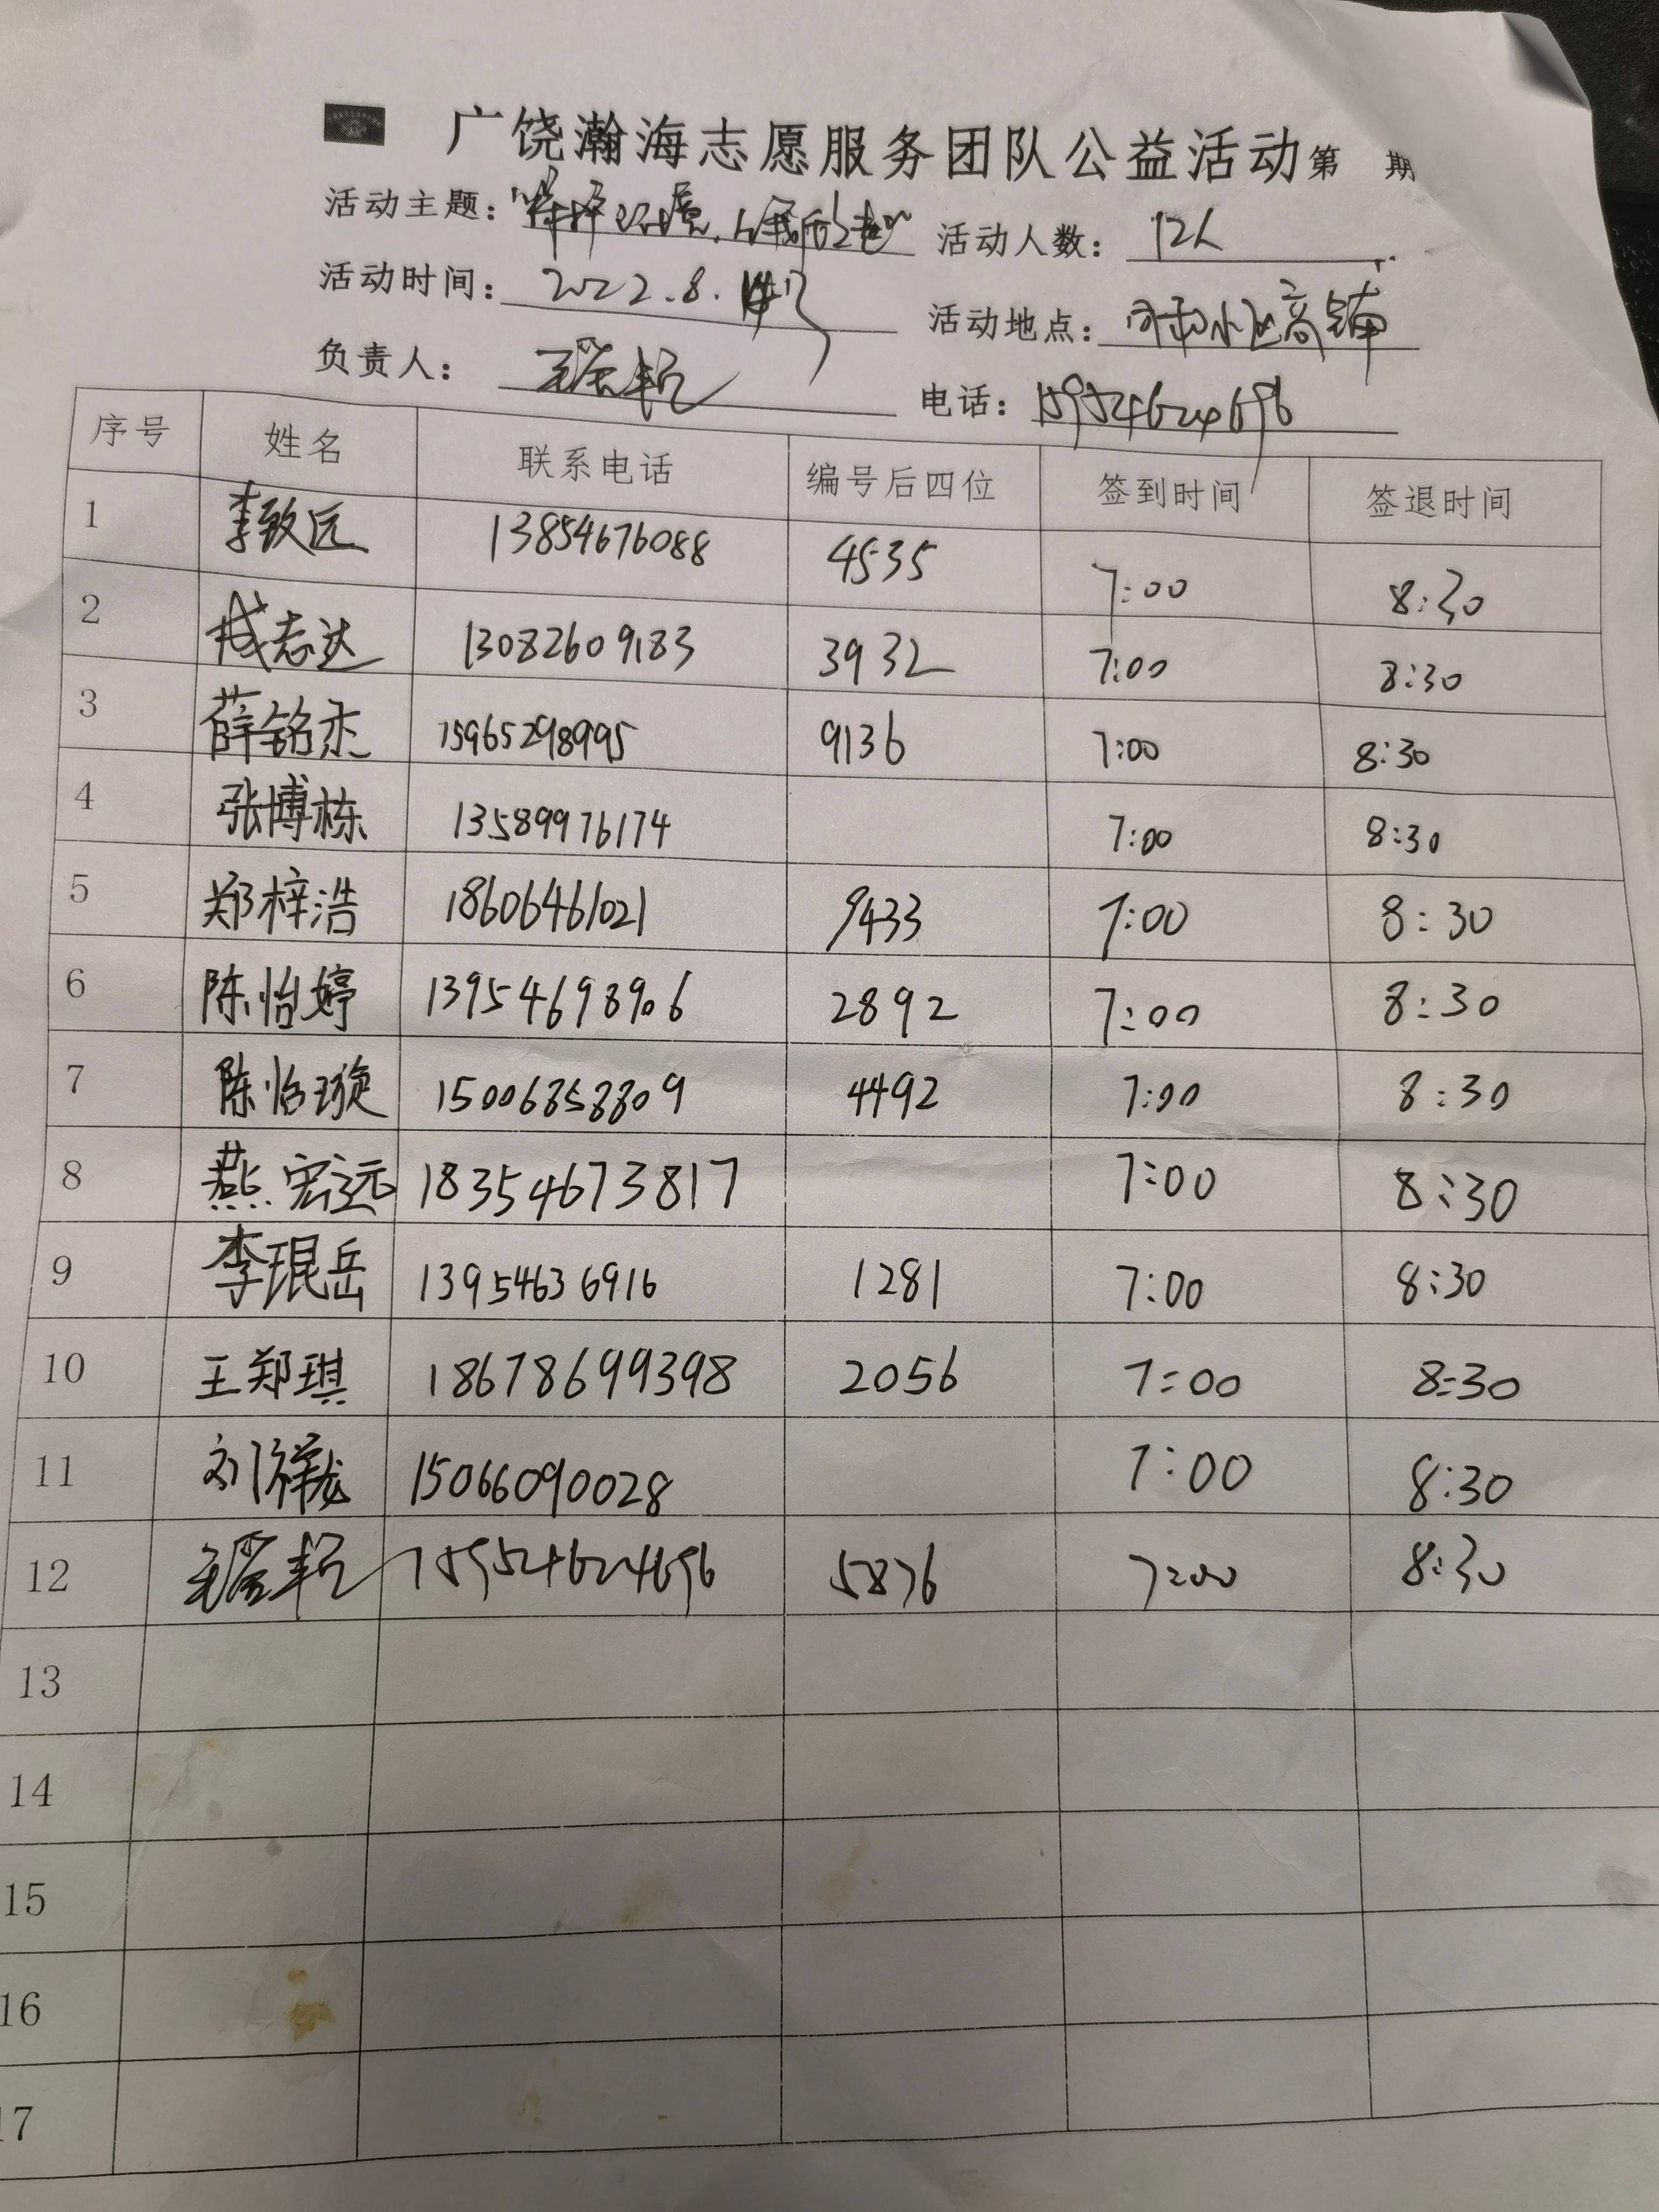 广饶瀚海志愿服务团队公益活动第 期
活动主题： 活动人数：12人
活动时间：2022.8. 活动地点：
负责人： 电话：159524624696
序号 姓名 联系电话 编号后四位 签到时间 签退时间
1 李致远 13854676088 4535 7:00 8:30
2 成志达 13082609183 3932 7:00 8:30
3 薛铭杰 15965298995 9136 7:00 8:30
4 张博栋 13589976174 7:00 8:30
5 郑梓浩 18606461021 9433 7:00 8:30
6 陈怡婷 13954698906 2892 7:00 8:30
7 陈怡璇 15006858809 4492 7:00 8:30
8 燕宏远 18354673817 7:00 8:30
9 李琨岳 13954636916 1281 7:00 8:30
10 王郑琪 18678699398 2056 7:00 8:30
11 刘祥龙 15066090028 7:00 8:30
12 5876 7:00 8:30
13
14
15
16
17